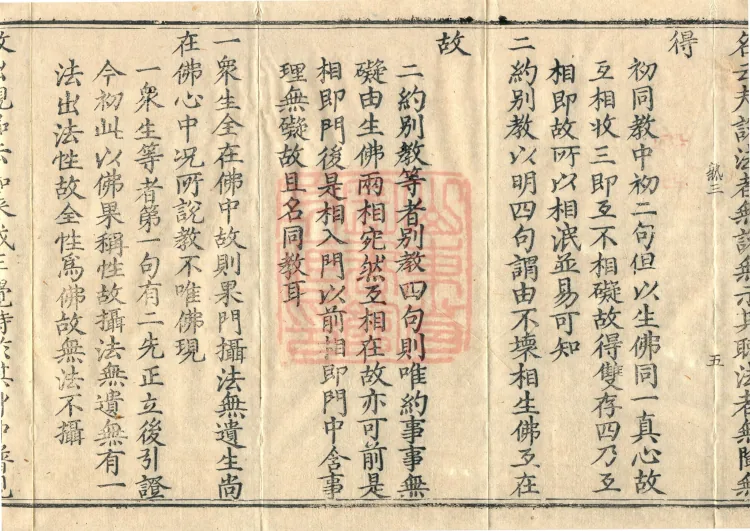 名云夫說法者無說無示其聽法者無聞無
五
得
初同教中初二句但以生佛同一真心故
互相收三即互不相礙故得雙存四乃互
相即故所以相泯並易可知
二約別教以明四句謂由不壞相生佛互在
故
二約別教等者別教四句則唯約事事無
礙由生佛兩相宛然互相在故亦可前是
相即門後是相入門以前相即門中含事
理無礙故且名同教耳
一衆生全在佛中故則果門攝法無遺生尚
在佛心中况所說教不唯佛現
一衆生等者第一句有二先正立後引證
今初此以佛果稱性故攝法無遺無有一
法出法性故全性爲佛故無法不攝
故出現品云如來成正覺時於其身中普見